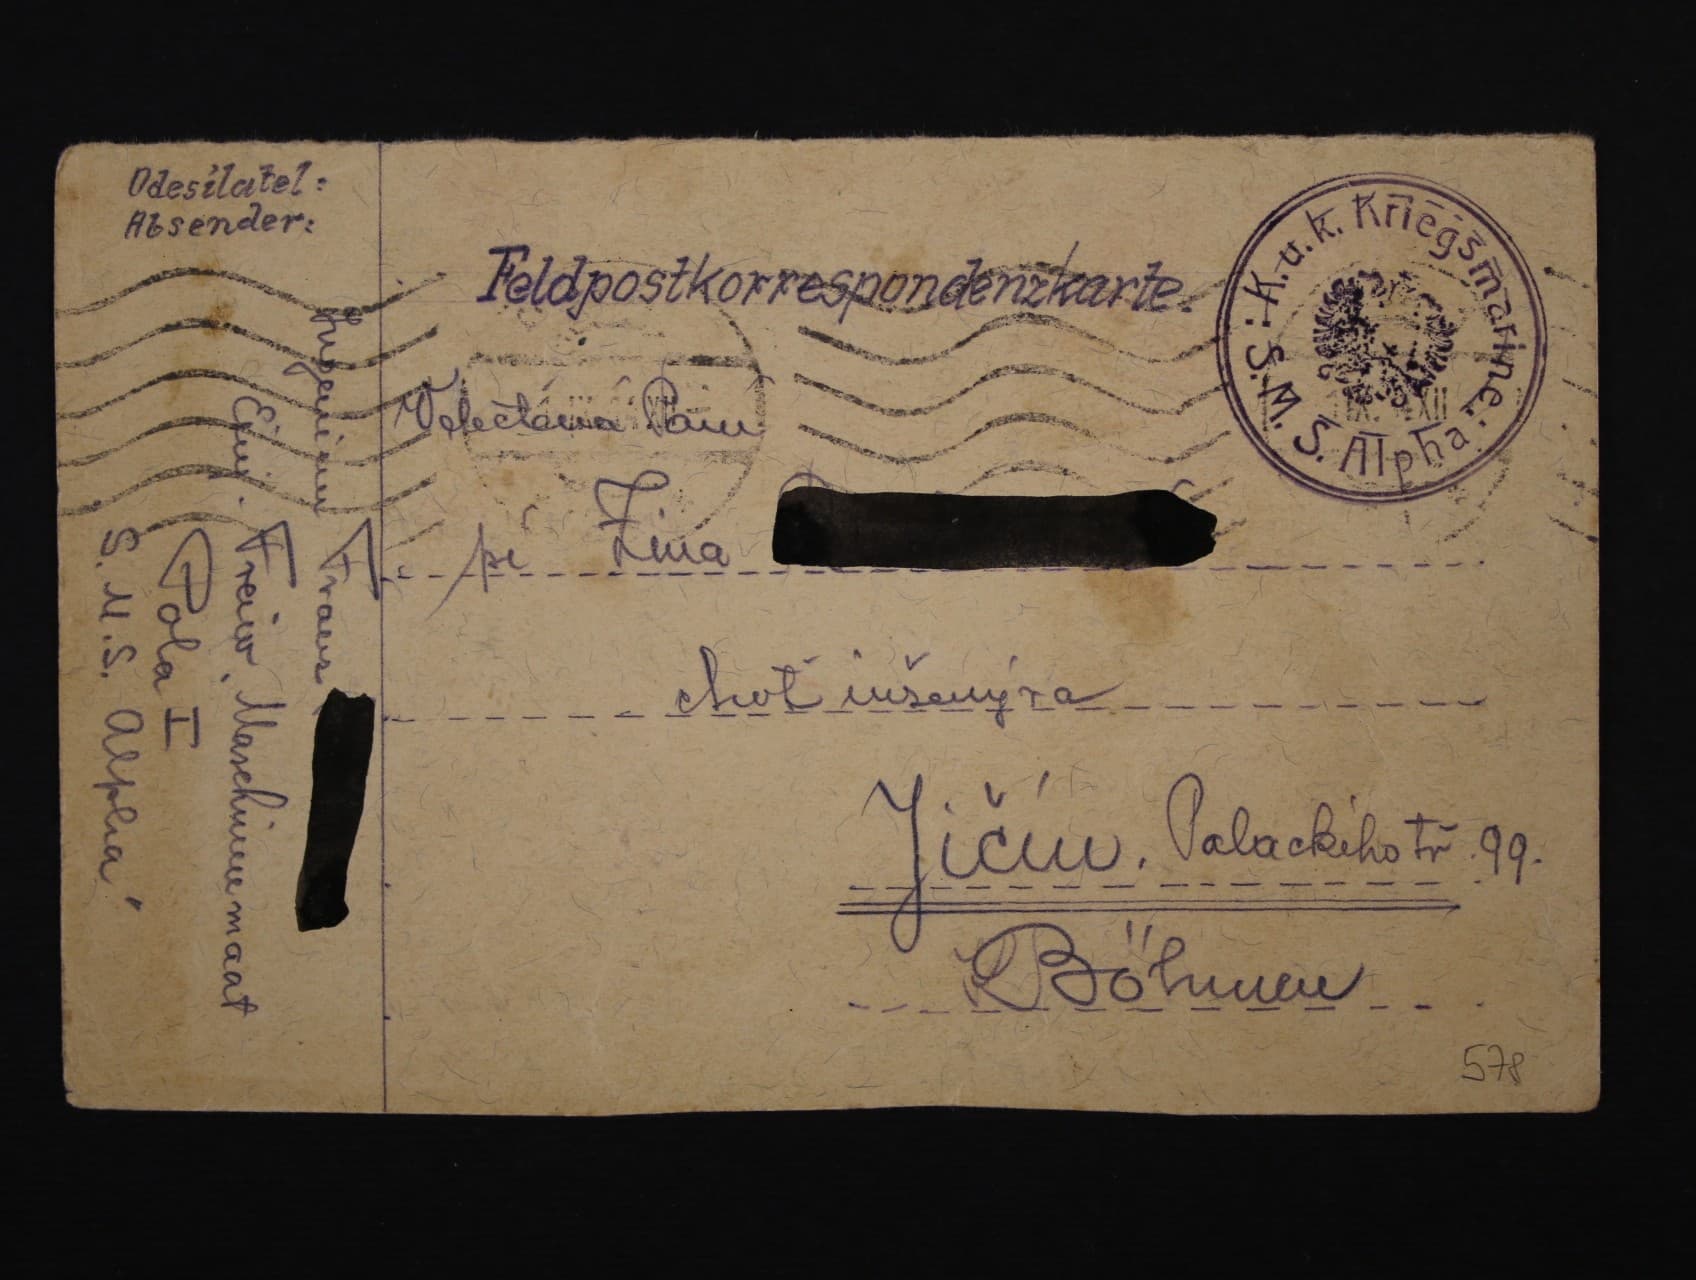 Odesílatel:
Absender:
Ingenieur Franz
Einj. Freiw. Maschinenmaat
Pola I
S.M.S. Alpha
Feldpostkorrespondenzkarte.
K.u.k. Kriegsmarine.
S.M.S. Alpha
XII
Velectěná Paní
pí Zina
choť inženýra
Jičín, Palackého tř. 99.
Böhmen
578